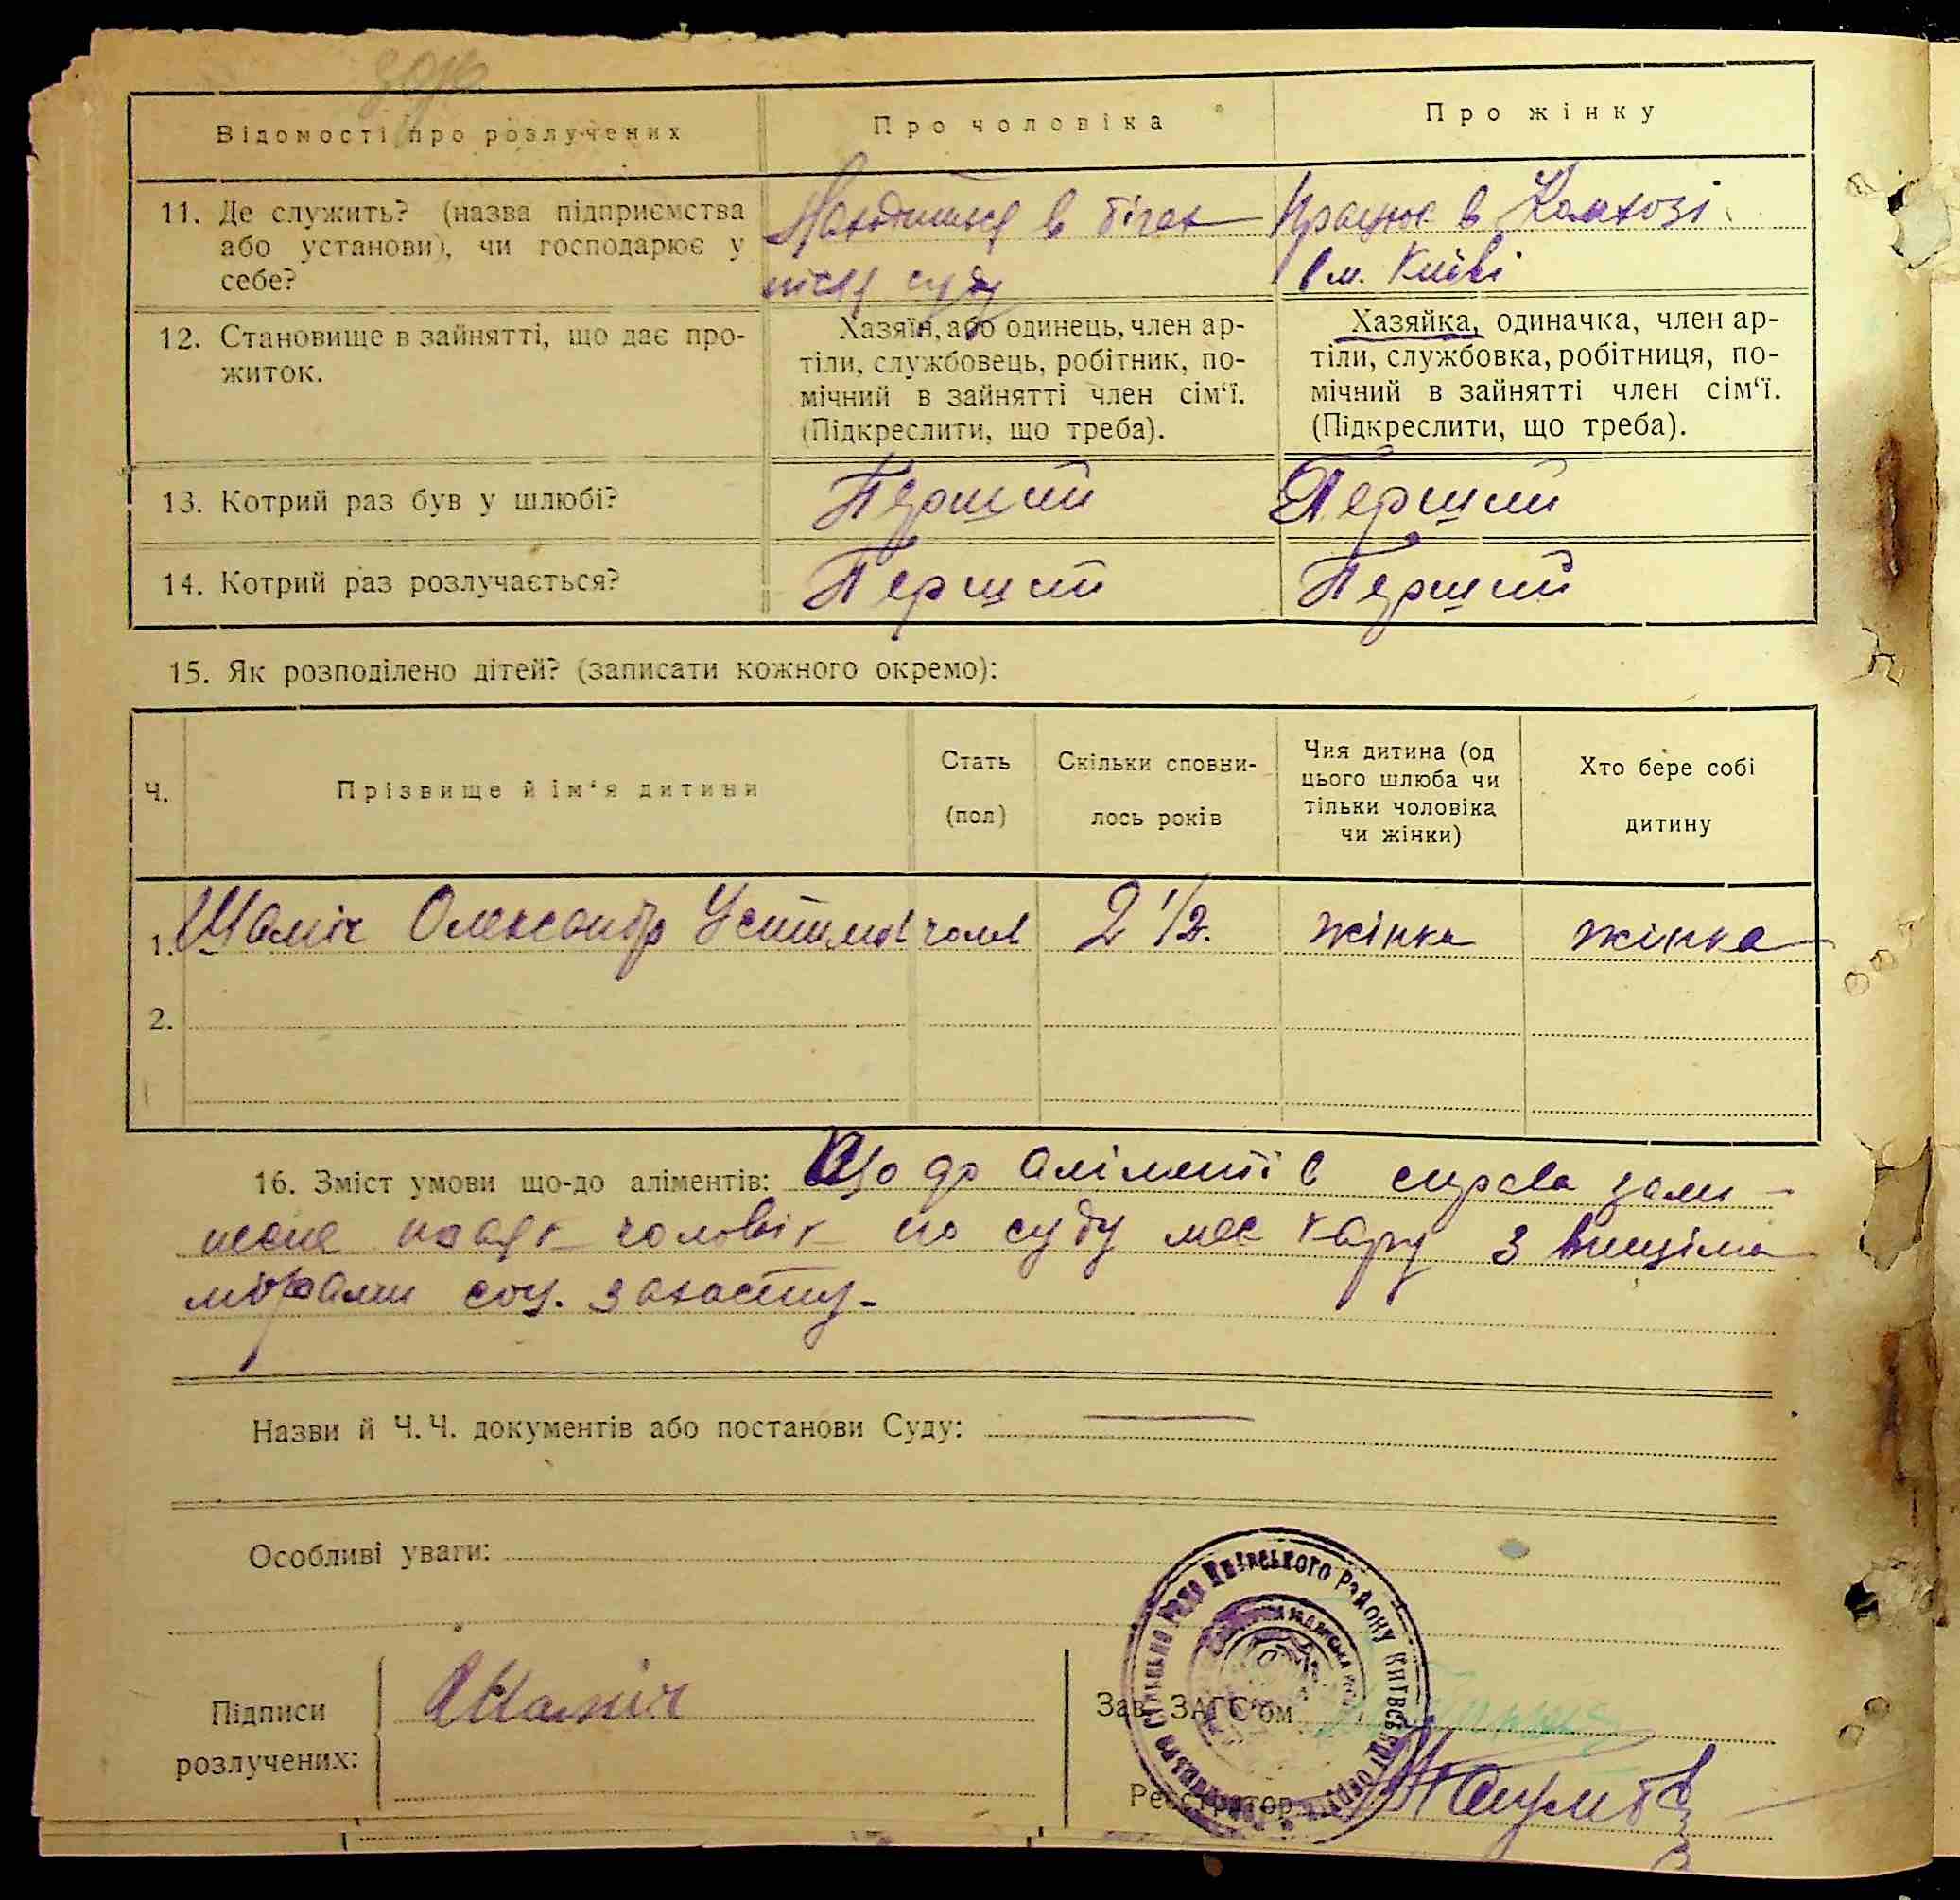 Відомості про розлучених
Про чоловіка
Про жінку
11. Де служить? (назва підприємства
або установи), чи господарює у
себе?
Находиться в бігах
після суду
Працює в Комхозі
в м. Київі
12. Становище в зайнятті, що дає про-
житок.
Хазяїн, або одинець, член ар-
тіли, службовець, робітник, по-
мічний в зайнятті член сім'ї.
(Підкреслити, що треба).
Хазяйка, одиначка, член ар-
тіли, службовка, робітниця, по-
мічний в зайнятті член сім'ї.
(Підкреслити, що треба).
13. Котрий раз був у шлюбі?
Перший
Перший
14. Котрий раз розлучається?
Перший
Перший
15. Як розподілено дітей? (записати кожного окремо):
Ч.
Прізвище й ім'я дитини
Стать
(пол)
Скільки сповни-
лось років
Чия дитина (од
цього шлюба чи
тільки чоловіка
чи жінки)
Хто бере собі
дитину
1. Шаміч Олександр Устимов чолов 2 1/2. жінка жінка
2.
16. Зміст умови що-до аліментів: Що до аліментів справа
чоловік по суду має кару з вищіма
мірами соц. захасту.
Назви й Ч. Ч. документів або постанови Суду:
Особливі уваги:
Підписи
розлучених:
Шаміч
Зав. ЗАГС'ом
Реєстратор
Київського району Київської округи